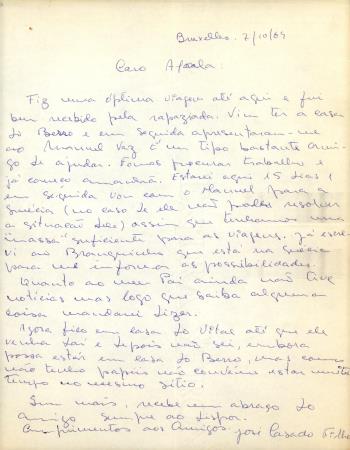 Bruxelles. 7/10/69
Caro Afoala:
Fiz uma óptima viagem até aqui e fui
bem recebido pela rapaziada. Vim ter a casa
do Berro e em seguida apresentaram-me
ao Manuel Vaz é um tipo bastante ami-
go de ajudar. Fomos procurar trabalho e
já começo amanhã. Estarei aqui 15 dias e
em seguida vou com o Manuel para a
Suécia (no caso de ele não poder resolver
a situação dele) assim que tenhamos uma
"massa" suficiente para as viagens. Já escre-
vi ao Branquinho que está na Suécia
para me informar as possibilidades.
Quanto ao meu Pai ainda não tive
notícias mas logo que saiba alguma
coisa mandarei dizer.
Agora fico em casa do Vital até que ele
venha daí e depois não sei, embora
possa estar em casa do Berro, mas como
não tenho papeis não convém estar muito
tempo no mesmo sítio.
Sem mais, recebe um abraço do
Amigo sempre ao dispor.
Cumprimentos aos Amigos. José Casado Filho